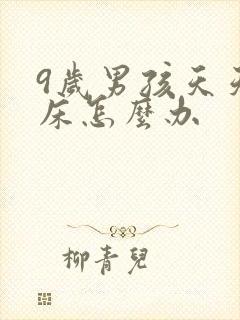 9歲男孩天天
床怎麼办
柳青兒